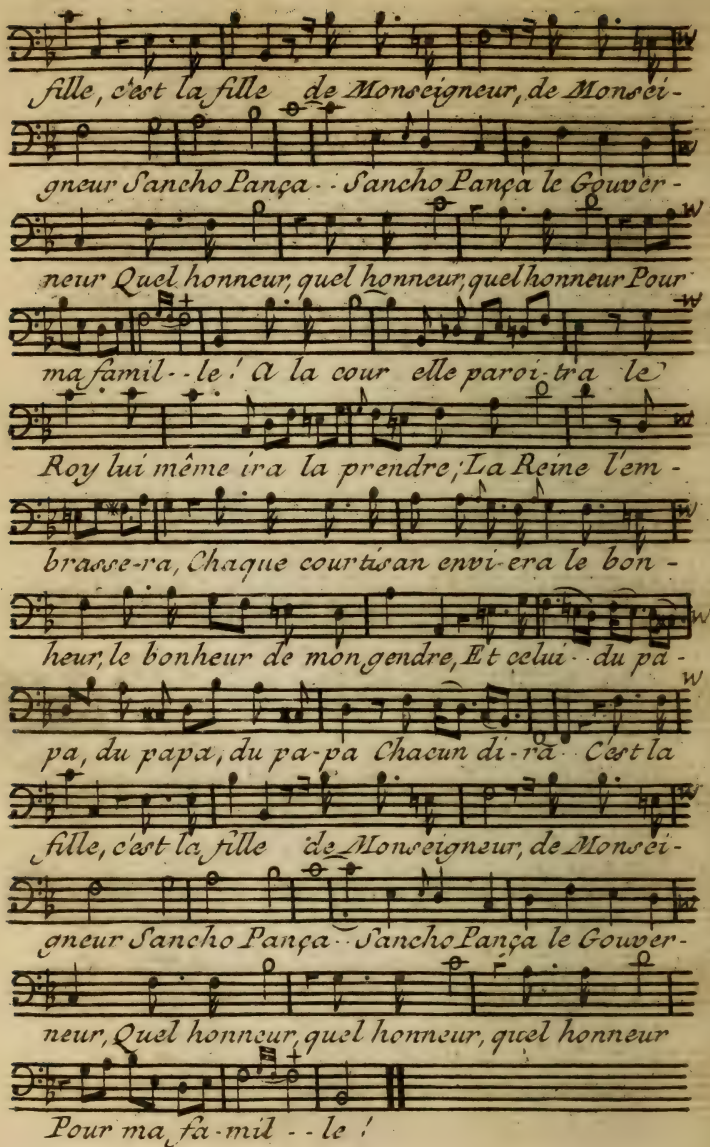 fille, c'est la fille de Monseigneur, de Monsei-
gneur Sancho Pança - - Sancho Pança le Gouver-
neur Quel honneur, quel honneur, quel honneur Pour
ma famil - - le ! A la cour elle paroi - tra le
Roy lui même ira la prendre, La Reine l'em-
brasse-ra, Chaque courtisan envi-era le bon-
heur, le bonheur de mon gendre, Et celui - - du pa-
pa, du papa, du pa-pa Chacun di-ra - - C'est la
fille, c'est la fille de Monseigneur, de Monsei-
gneur Sancho Pança - - Sancho Pança le Gouver-
neur, Quel honneur, quel honneur, quel honneur
Pour ma fa-mil - - le !